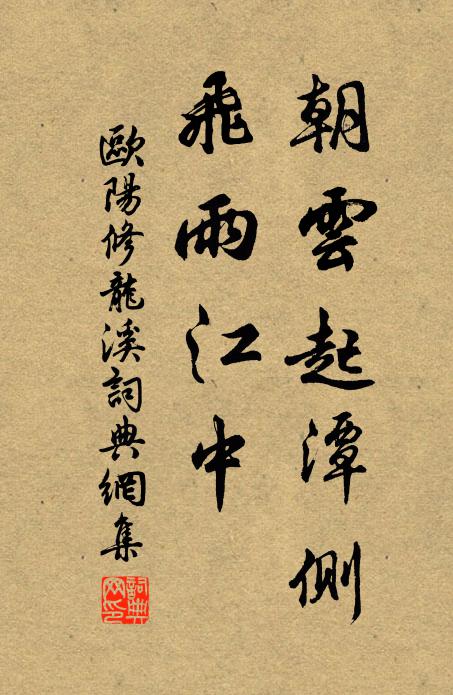 朝雲起潭側
飛雨江中
歐陽修龍溪詞典網集
詞典网印